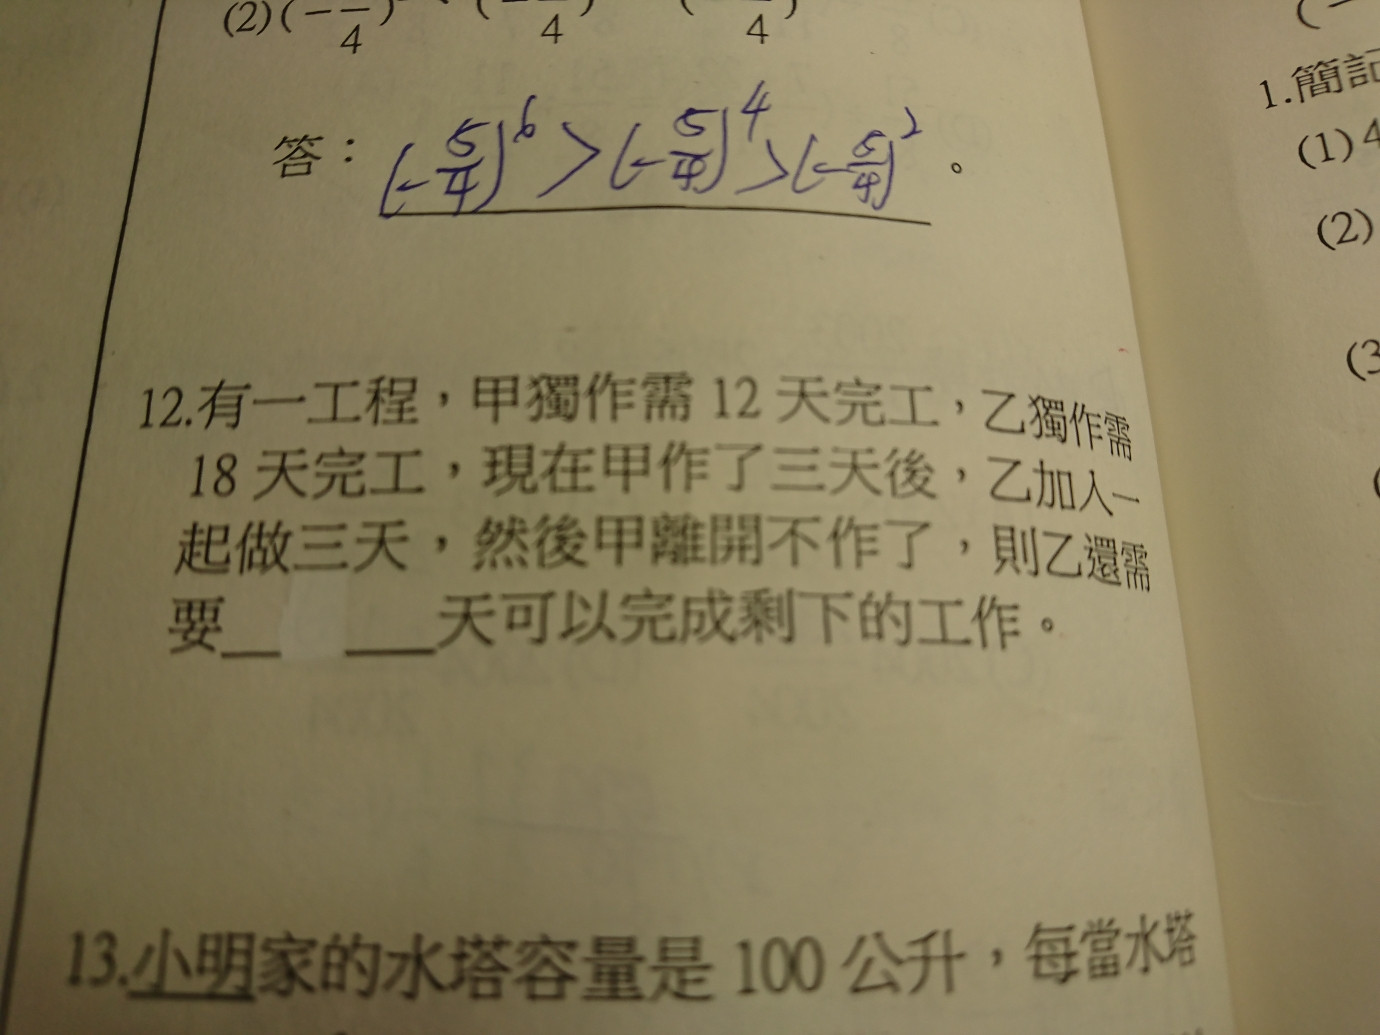 (2)(−─/4) (−─/4) (−─/4)
(−
1.簡記
答：(−5/4)^6 > (−5/4)^4 > (−5/4)^2。
(1)4
(2)
(3
12.有一工程，甲獨作需 12 天完工，乙獨作需
18 天完工，現在甲作了三天後，乙加入一
起做三天，然後甲離開不作了，則乙還需
要__ ___天可以完成剩下的工作。
13.小明家的水塔容量是 100 公升，每當水塔